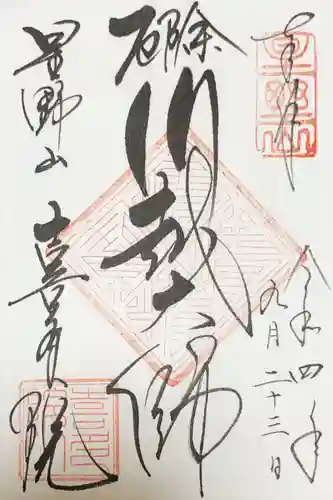 奉拝
令和四年
九月二十三日
厄除
川越大師
星野山
喜多院